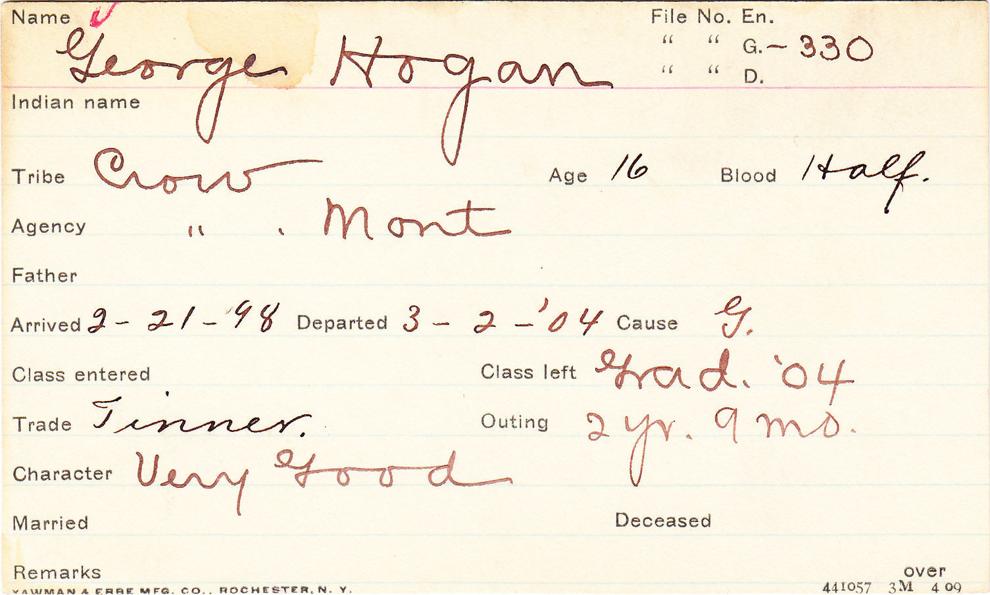 Name File No. En.
George Hogan “ “ G. - 330
“ “ D.
Indian name
Tribe Crow Age 16 Blood Half.
Agency " . Mont
Father
Arrived 2 - 21 - '98 Departed 3 - 2 - '04 Cause G.
Class entered Class left Grad. '04
Trade Tinner. Outing 2 yr. 9 mo.
Character Very Good
Married Deceased
Remarks over
YAWMAN & ERBE MFG. CO., ROCHESTER, N. Y. 441057 3M 4 09